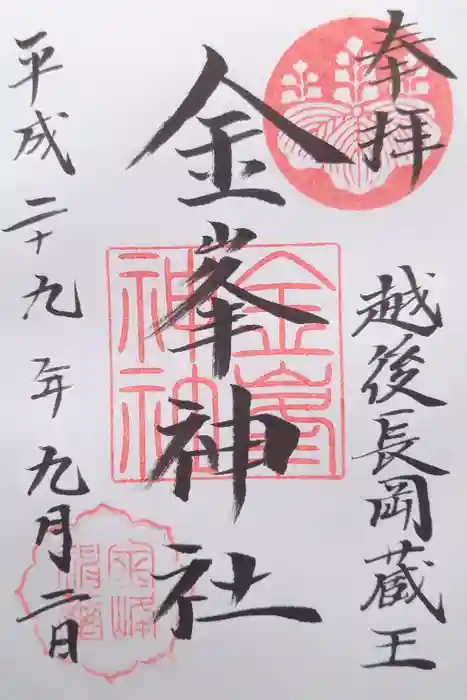 奉拝
越後長岡蔵王
金峯神社
金峯神社
平成二十九年九月二日